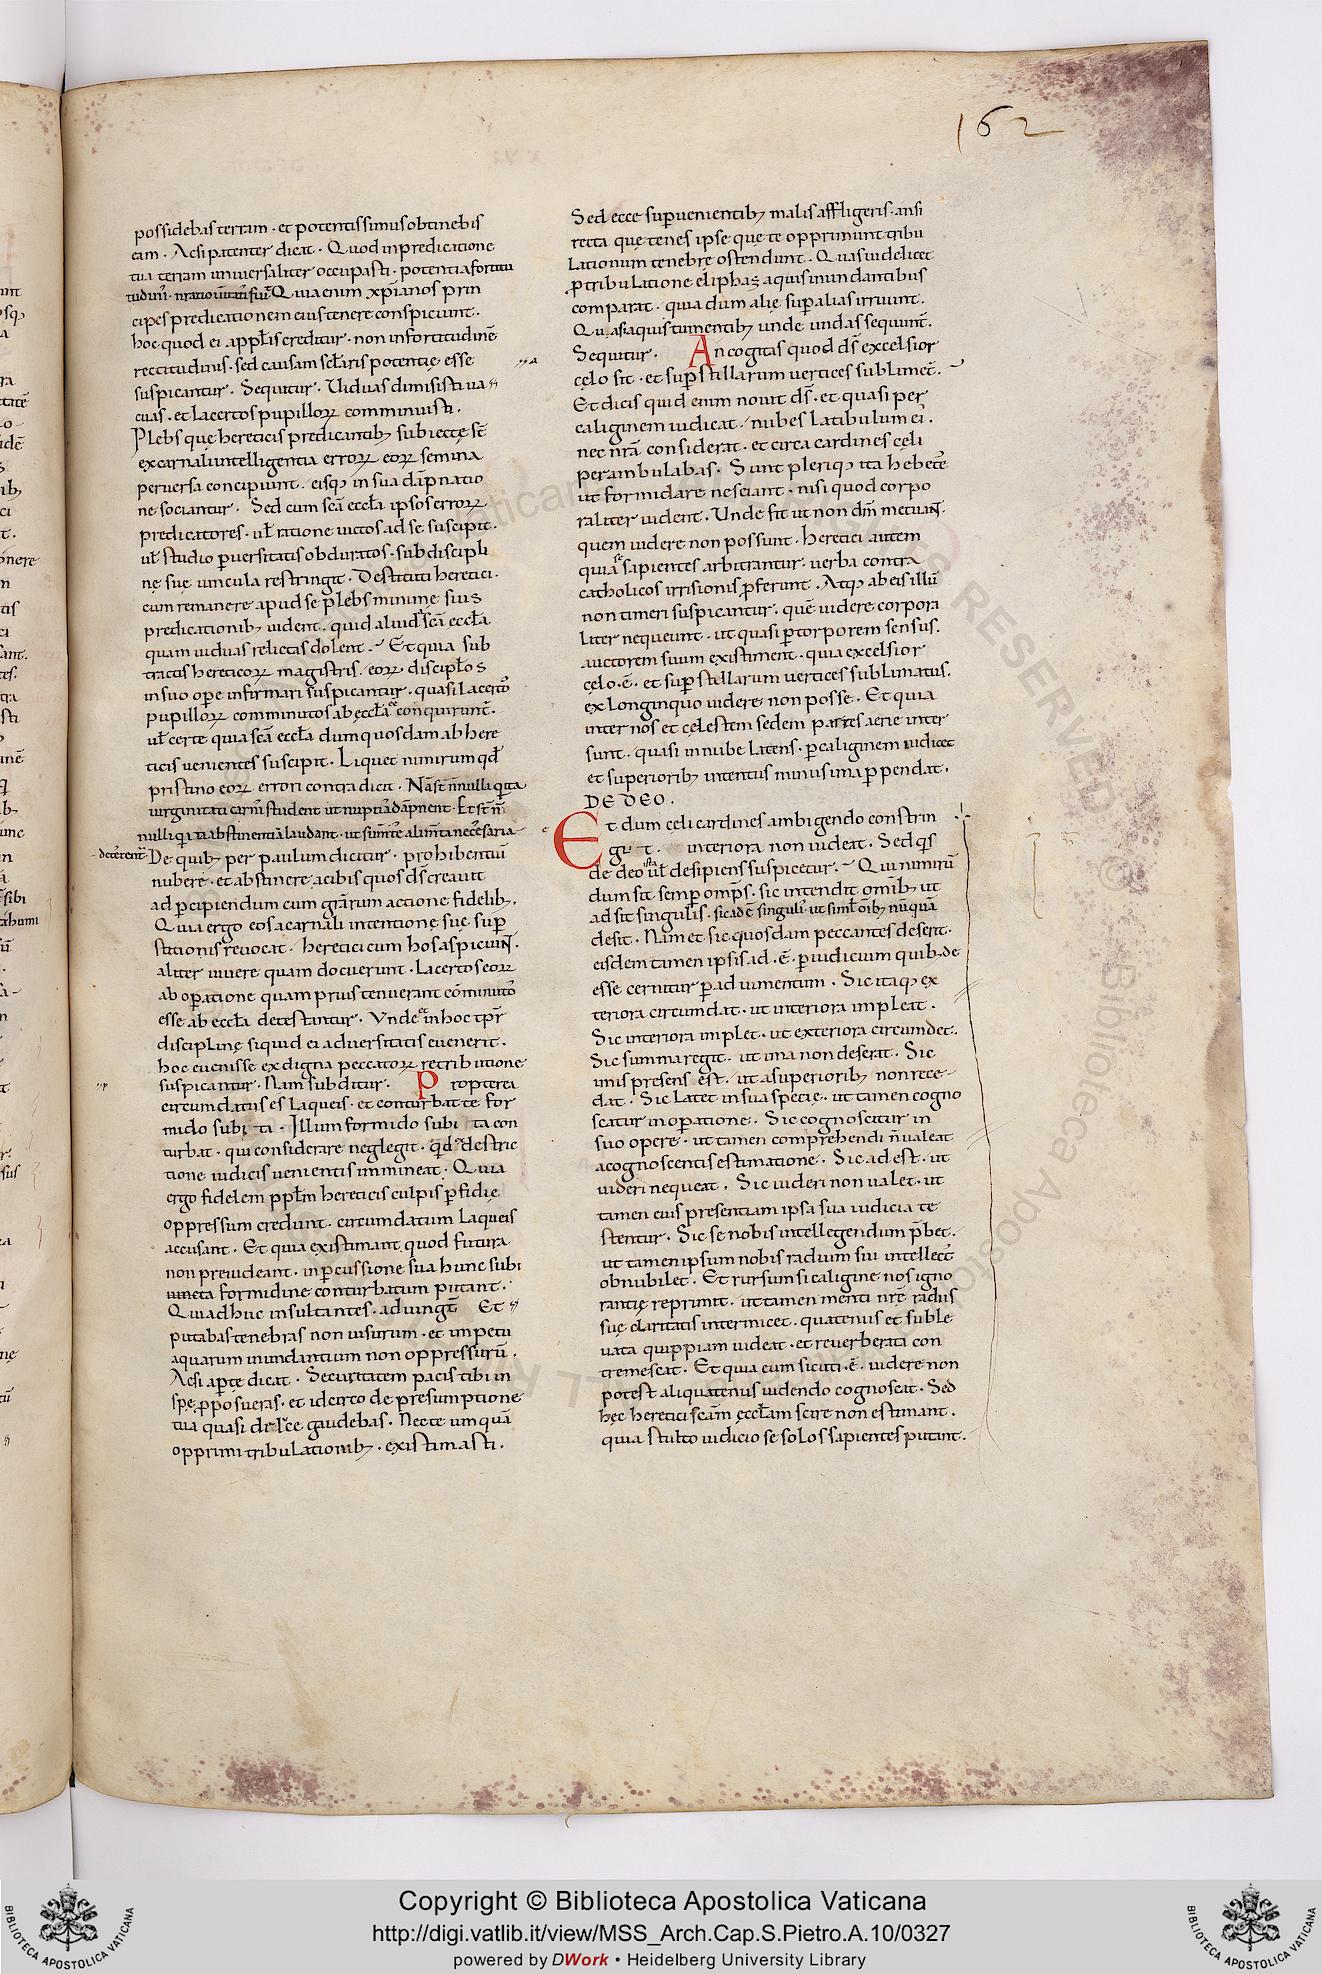 162
possidebas terram · et potentissimus obtinebis
eam · Ac si patenter dicat · Quod in predicatione
tua terram universaliter occupasti · potentia fortitu
Quia enim xpianos prin
cipes predicationem eius tenere conspiciunt ·
hoc quod ei appłis creditur · non in fortitudinē
rectitudinis · sed causam sclaris potentię esse
suspicantur · Sequitur · Uiduas dimisisti va
cuas · et lacertos pupilloꝝ comminuisti ·
Plebs quę hereticis predicantibꝫ subiectę st̄
ex carnali intelligentia erroꝝ eoꝝ semina
perversa concipiunt · eisqꝫ in sua dāpnatio
ne sociantur · Sed cum scā eccła ipsos erroꝝ
predicatores · uł ratione victos ad se suscipit ·
uł studio ꝑversitatis obduratos · sub discipli
nę suę vincula restringit · Destituti heretici ·
cum remanere apud se plebs minime suis
predicationibꝫ vident · quid aliud scā eccła
quam viduas relictas dolent · Et quia sub
tractis hereticoꝝ magistris · eoꝝ discipłos
in suo oꝑe infirmari suspicantur · quasi lacertos
pupilloꝝ comminutos ab eccła conquirunt ·
uł certe quia scā eccła dum quosdam ab here
ticis venientes suscipit · Liquet nimirum qđ
pristino eoꝝ errori contradicit · Nā st̄ n̄nulli q̇ ita
virginitati carnis student ut nuptias dāpnent · Et st̄ n̄
nulli q̇ ita abstinentiā laudant · ut sumentes alimenta necessaria
detestent
De quibꝫ per paulum dicitur · prohibentiū
nubere · et abstinere a cibis quos ds̄ creavit
ad ꝑcipiendum cum grārum actione fidelibꝫ ·
Quia ergo eos a carnali intentione suę suꝑ
stitionis revocat · heretici cum hos aspiciunt
aliter vivere quam docuerunt · lacertos eoꝝ
ab oꝑatione quam prius tenuerant cōminutos
esse ab eccła detestantur · Unde in hoc tp̄r
disciplinę siquid ei adversitatis evenerit ·
hoc evenisse ex digna peccatoꝝ retributione
suspicantur · Nam subditur · Propterea
circumdatus es laqueis · et conturbat te for
mido subita · Illum formido subita con
turbat · qui considerare neglegit · qđ de stric
tione iudicis venientis immineat · Quia
ergo fidelem ppłm hereticis culpis ꝑfidię
oppressum credunt · circumdatum laqueis
accusant · Et quia existimant quod futura
non prevideant · in ꝑcussione sua hunc subi
formidine conturbatum putant ·
Qui adhuc insultantes · adiungt̄ Et
putabas tenebras non visurum · et impetu
aquarum inundantium non oppressurū ·
Ac si aꝑte dicat · Securitatem pacis tibi in
spe ꝓposueras · et idcirco de presumptione
tua quasi de luce gaudebas · Nec te umquā
opprimi tribulationibꝫ · existimasti ·
Sed ecce suꝑvenientibꝫ malis affligeris · an si
recta quę tenes ipse quę te opprimunt tribu
lationum tenebrę ostendunt · Quas videlicet
ꝑ tribulatione eliphaz aquis inundantibus
comparat · quia dum alię suꝑ alias irruunt ·
Quasi aquis tumentibꝫ unde undas sequunt̄ ·
Sequitur · An cogitas quod ds̄ excelsior
cęlo sit · et suꝑ stellarum vertices sublimet̄ ·
Et dicis quid enim novit ds̄ · et quasi per
caliginem iudicat · nubes latibulum ei ·
nec nrā considerat · et circa cardines cęli
perambulabas · Sunt pleriqꝫ ita hebetes
ut formidare nesciant · nisi quod corpo
raliter vident · Unde fit ut non dm̄ metuant
quem videre non possunt · heretici autem
quia se sapientes arbitrantur · verba contra
catholicos irrisionis ꝓferunt · Atqꝫ ab eis illū
non timeri suspicantur · quē videre corpora
liter nequeunt · ut quasi ꝑ torporem sensus ·
auctorem suum existiment · quia excelsior
cęlo · ē · et suꝑ stellarum vertices sublimatus ·
ex longinquo videre non posse · Et quia
inter nos et cęlestem sedem partes aerię inter
sunt · quasi in nube latens · ꝑ caliginem iudicet
et superioribꝫ intentus minus ima ꝑpendat ·
DE DEO ·
Et dum cęli cardines ambigendo constrin
git · interiora non videat · Sed q̇s
de deo ista uł desipiens suspicetur · Qui nimirū
dum sit semꝑ omps̄ · sic intendit omībꝫ ut
adsit singulis · sic adē singulis · ut simł oībꝫ nūquā
desit · Nam et sic quosdam peccantes deserit ·
eisdem tamen ipsis ad · ē · ꝑ iudicium quibꝫ de
esse cernitur ꝑ adiumentum · Sic itaqꝫ ex
teriora circumdat · ut interiora impleat ·
Sic interiora implet · ut exteriora circumdet ·
Sic summa regit · ut ima non deserat · Sic
imis presens est · ut a superioribꝫ non rece
dat · Sic latet in sua specie · ut tamen cogno
scatur in oꝑatione · Sic cognoscitur in
suo opere · ut tamen comprehendi n̄ valeat
a cognoscentis estimatione · Sic adest · ut
videri nequeat · Sic videri non valet · ut
tamen eius presentiam ipsa sua iudicia te
stentur · Sic se nobis intellegendum p̄bet ·
ut tamen ipsum nobis radium sui intellect̄
obnubilet · Et rursum si caligine nos igno
rantię reprimit · ut tamen menti nrē radiis
suę claritatis intermicet · quatenus et suble
vata quippiam videat · et reverberata con
tremescat · Et quia eum sicuti · ē · videre non
potest aliquatenus videndo cognoscat · Sed
hęc heretici scām ęccłam scire non estimant ·
quia stulto iudicio se solos sapientes putant ·
Copyright © Biblioteca Apostolica Vaticana
http://digi.vatlib.it/view/MSS_Arch.Cap.S.Pietro.A.10/0327
powered by DWork • Heidelberg University Library
BIBLIOTECA APOSTOLICA VATICANA
BIBLIOTECA APOSTOLICA VATICANA